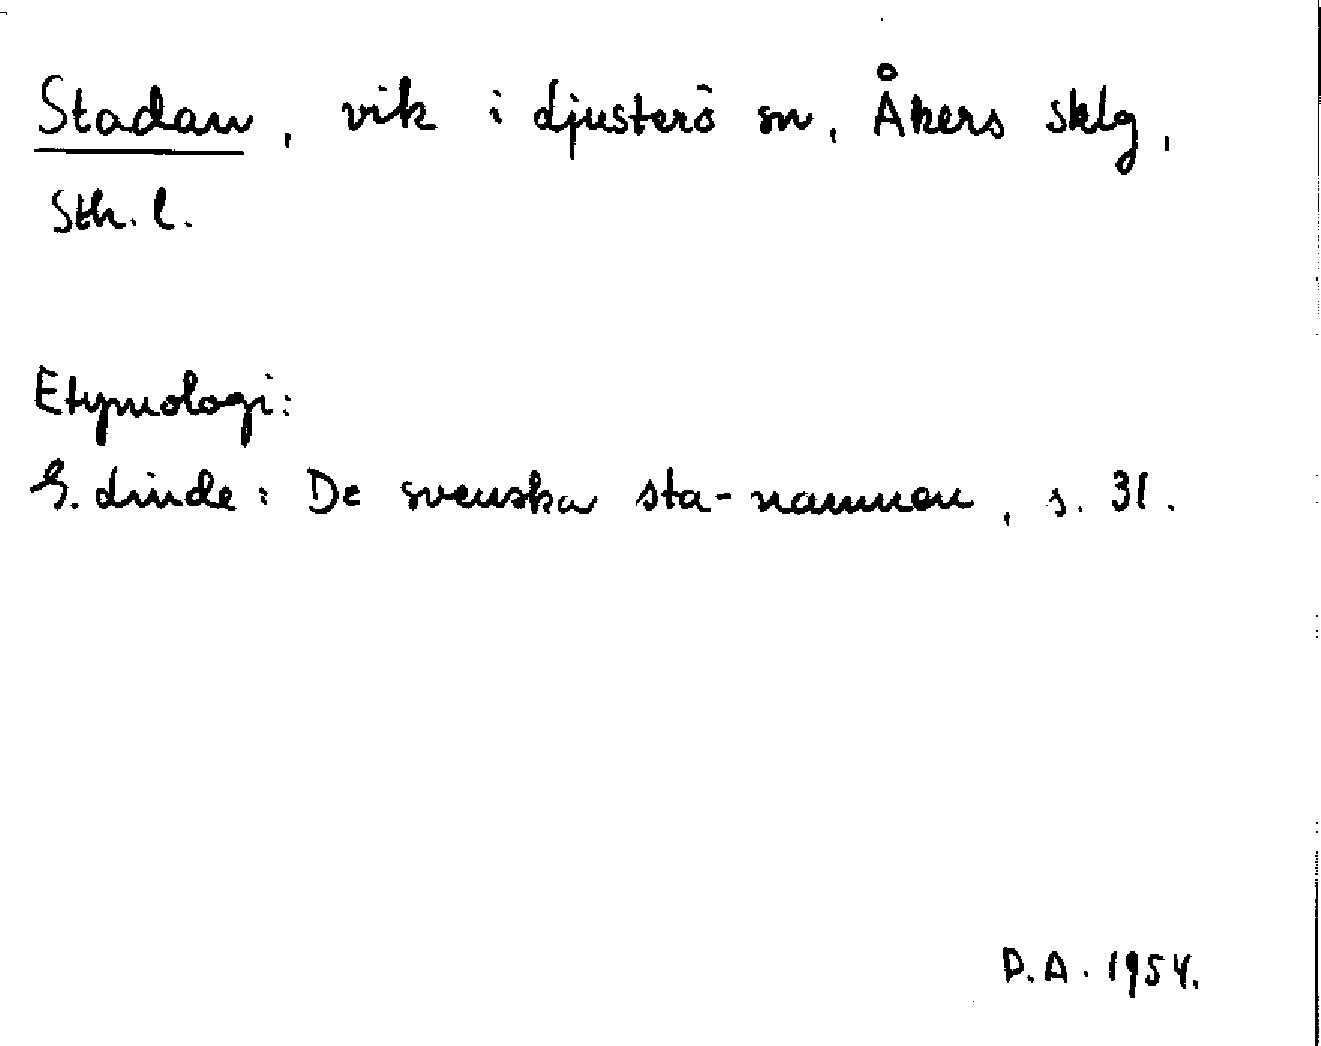 Stadan, vik i Ljusterö sn, Åkers sklg,
Sth. l.
Etymologi:
G. Linde: De svenska sta-namnen, s. 31.
D.A. 1954.